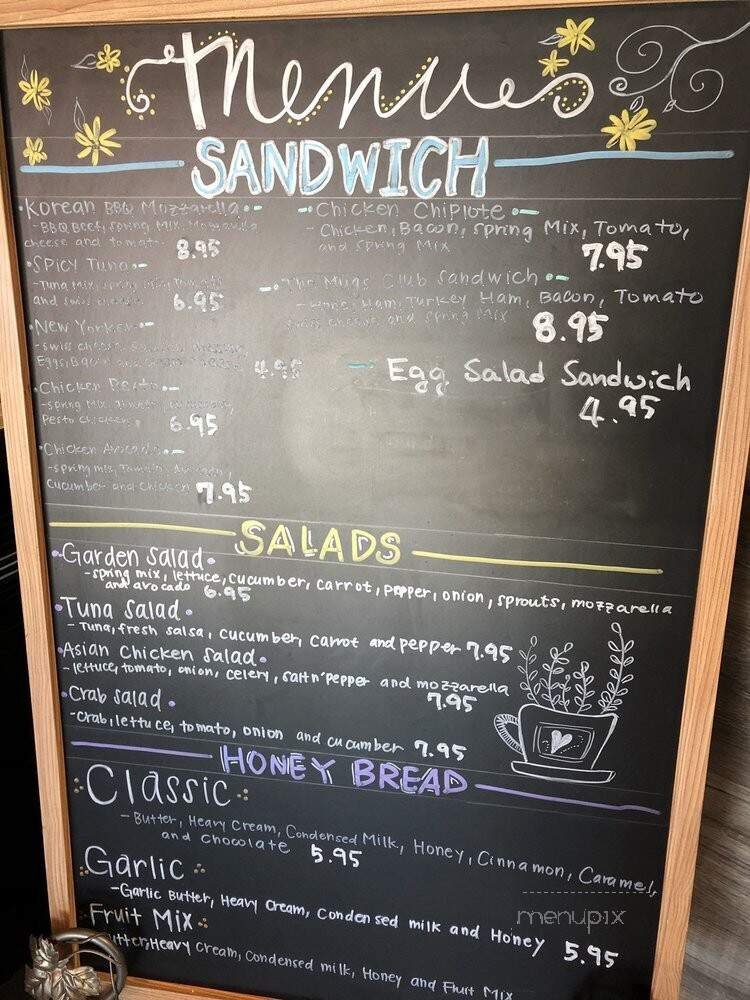 Menues
SANDWICH
Korean BBQ Mozzarella
- BBQ Beef, Spring Mix, Mozzarella,
cheese and tomato
8.95
Spicy Tuna
- Tuna mix, spring mix, Tomato
and swiss cheese
6.95
New Yorker
- swiss cheese,
Eggs, Bacon and
4.95
Chicken Pesto
- spring mix,
Pesto Chicken
6.95
Chicken Avocado
- spring mix, Tomato, Avocado,
Cucumber and Chicken 7.95
Chicken Chiplote
- Chicken, Bacon, Spring Mix, Tomato,
and Spring Mix
7.95
The Mugs Club Sandwich
- Hone Ham, Turkey Ham, Bacon, Tomato
swiss cheese and spring Mix
8.95
Egg Salad Sandwich
4.95
SALADS
Garden Salad
- spring mix, lettuce, cucumber, carrot, pepper, onion, sprouts, mozzarella
and avocado 6.95
Tuna Salad
- Tuna, fresh salsa, cucumber, carrot and pepper 7.95
Asian Chicken Salad
- lettuce, tomato, onion, celery, salt n' pepper and mozzarella
7.95
Crab Salad
- crab, lettuce, tomato, onion and cucumber 7.95
HONEY BREAD
Classic
- Butter, Heavy Cream, Condensed Milk, Honey, Cinnamon, Caramel,
and chocolate 5.95
Garlic
- Garlic Butter, Heavy Cream, Condensed milk and Honey 5.95
Fruit Mix
Butter, Heavy Cream, Condensed milk, Honey and Fruit Mix
menupix